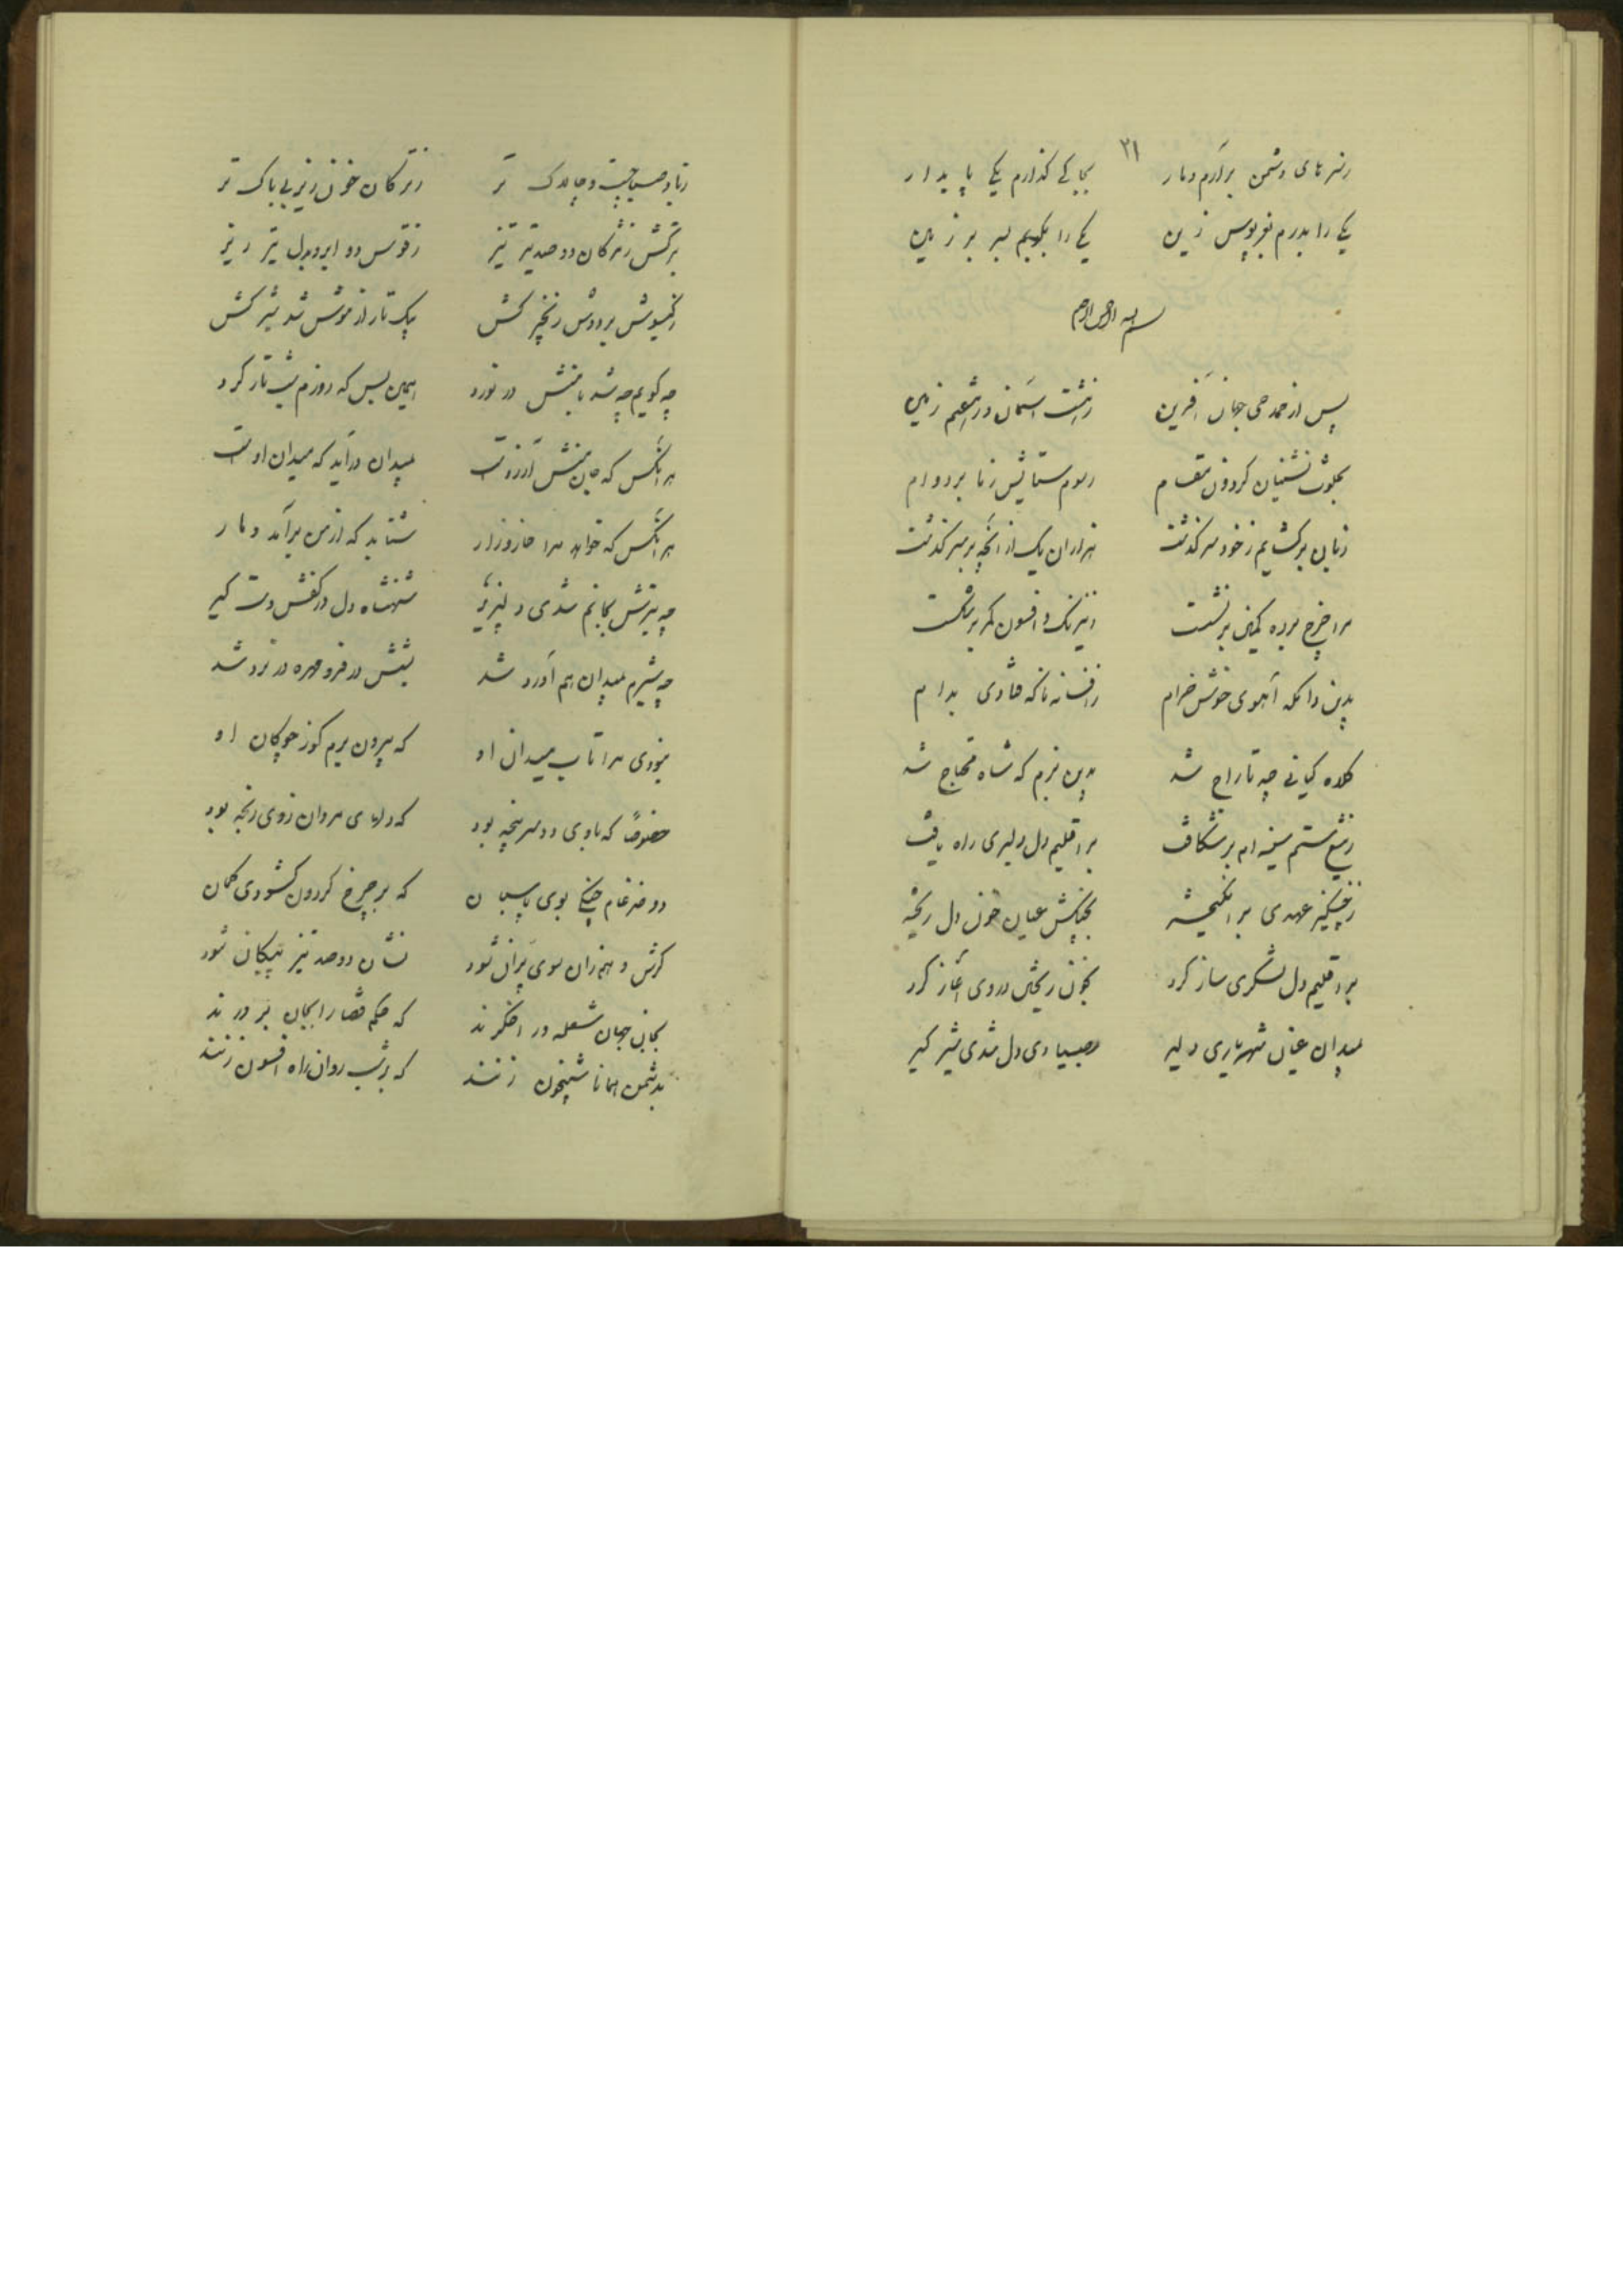 ۳۱
ز سرهای دشمن برآرم دمار بجا کی گذارم یکی پایدار
یکی را بدرم بقربوس زین یکی را بکوبم بسر بر زمین
بسم الله الرحمن الرحیم
پس از حمد حی جهان آفرین آسمان در زمین
نشینان گردون مقام رسوم ستایش ز ما بر دوام
زبان برگشایم ز خود سرگذشت هزاران یک از آنچه بر سر گذشت
مرا چرخ کمین برنشست ز نیرنگ و افسون کمر برشکست
بدین دامگه آهوی خوش خرام ز افسانه ناگه فتادی بدام
کلاه کیانی چه تاراج شد بدین بزم که شاه محتاج شد
ز تیغ ستم سینه‌ام برشکافت بر اقلیم دل دلبری راه یافت
ز چنگیز عهدی برانگیخته بچنگش عیان خون دل ریخته
بر اقلیم دل لشکری ساز کرد بخون ریختن در وی آغاز کرد
بمیدان عنان شهریاری دلیر بصیادی دل شدی شیر گیر
ز باد صبا چست و چابک تر ز ترکان خون ریز بی باک تر
بترکش ز مژگان دو صد تیر تیز ز قوس دو ابرو بدل تیر ریز
ز گیسوش بر دوش زنجیر کش یک تار از مویش شد شیر کش
چه گویم چه شد با منش در نورد همین بس که روزم شب تار کرد
هر آنکس که منش آرزوست بمیدان درآید که میدان اوست
هر آنکس که خواند مرا شتابد که از من برآید دمار
چه تیرش بجانم شدی دلپذیر شهنشاه دل در کفش دستگیر
چه شیرم بمیدان هم آورد شد شش در فرو مهره در نرد شد
نبودی مرا تاب میدان او که بیرون برم گو ز چوگان او
خصوصاً که با وی دو سر پنجه بود که دلهای مردان ز وی رنجه بود
دو ضرغام جنگی بوی پاسبان که بر چرخ گردون گشودی کمان
گرش وهم زان سوی پران شود نشان دو صد تیر پیکان شود
بجان جهان شعله در افکنند که حکم قضا را بجان
بدشمن همانا شبیخون زنند که بر شب روان راه افسون زنند